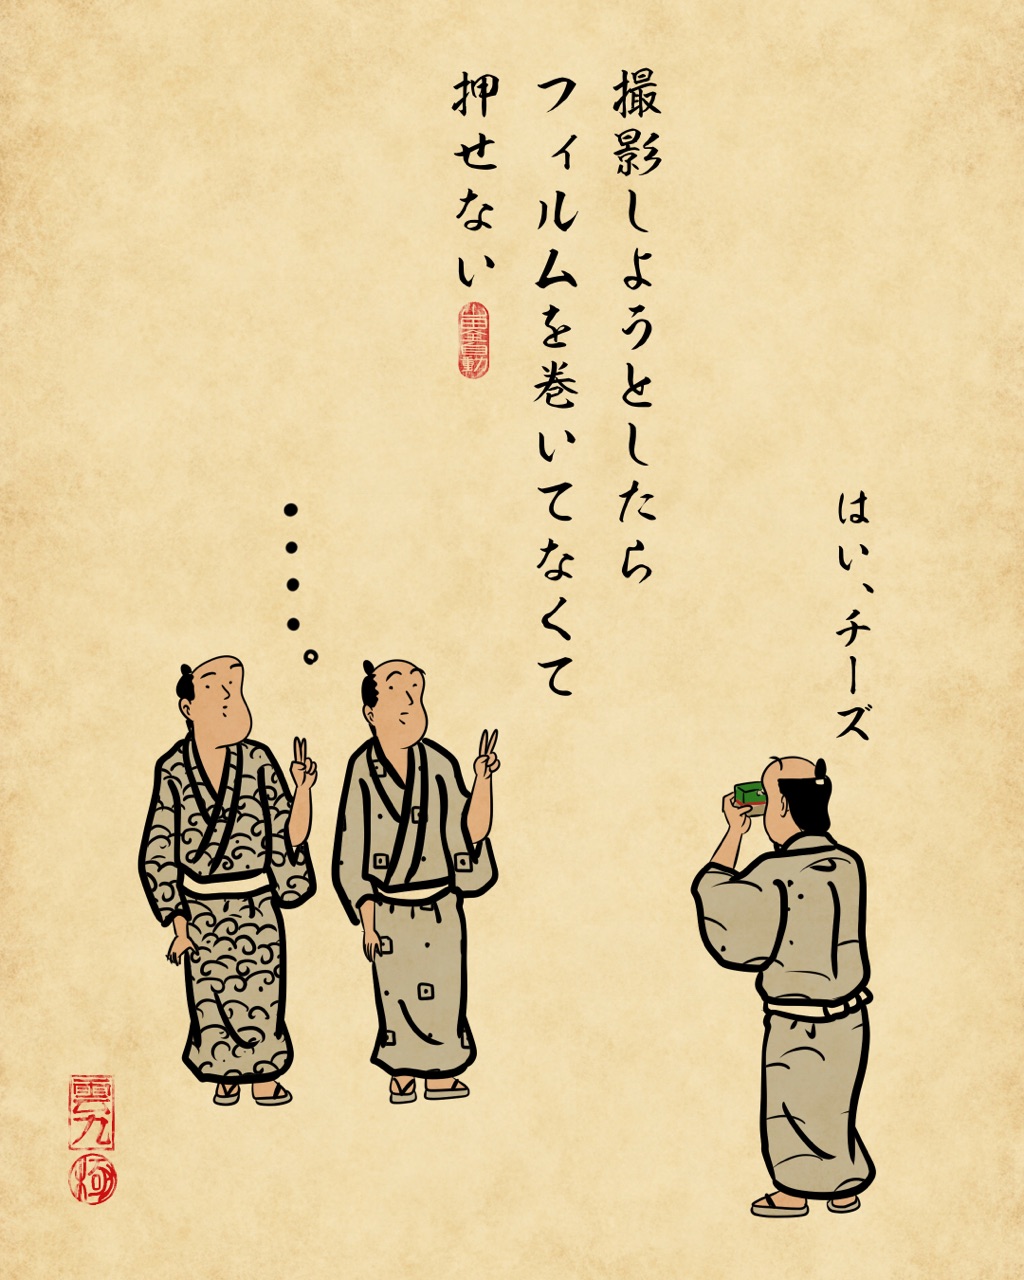 撮影しようとしたら
フィルムを巻いてなくて
押せない
はい、チーズ
・・・・。